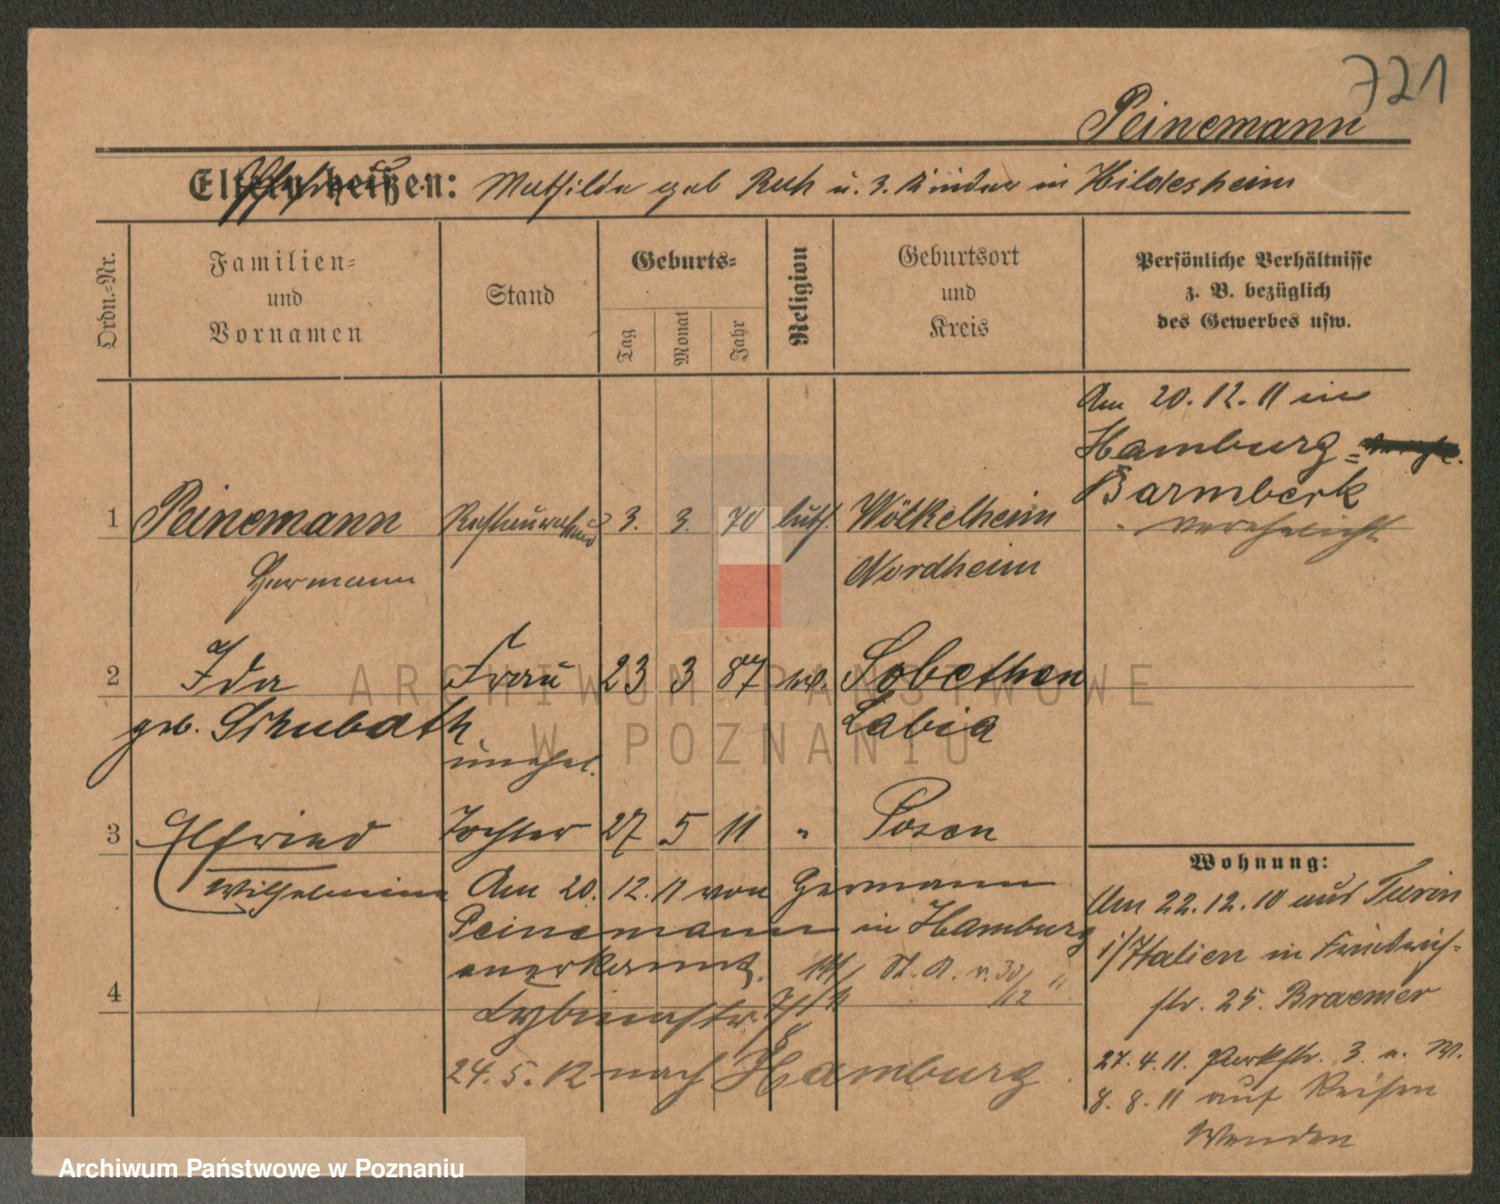 721
Peinemann
Eltern heißen: Mathilde geb Ruh u. 3. Kinder in Hildesheim
Ordn.-Nr.
Familien-
und
Vornamen
Stand
Geburts-
Tag
Monat
Jahr
Religion
Geburtsort
und
Kreis
Persönliche Verhältnisse
z. B. bezüglich
des Gewerbes usw.
Am 20.12.11 in
Hamburg-
Barmbeck
verehelicht
1 Peinemann 3. 3. 70 luth. Wölkelheim
Hermann Nordheim
2 Ida Frau 23 3 87 w. Sobethen
geb. Skubath Labia
unehel.
3 Elfried Tochter 27 5 11 " Posen
Wilhelmine Am 20.12.11 von Hermann
Peinemann in Hamburg
anerkannt. St. A. v. 30/12 11
4
24.5.12 nach Hamburg
Wohnung:
Am 22.12.10 aus Turin
i/Italien in Friedrich-
str. 25. Braemer
27.4.11. Parkstr. 3. a. W.
8.8.11 auf Reisen
Wenden
ARCHIWUM PAŃSTWOWE
W POZNANIU
Archiwum Państwowe w Poznaniu